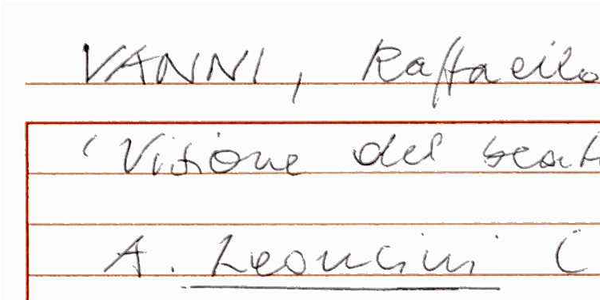 VANNI, Raffaello
'Visione del beat
A. Leoncini (